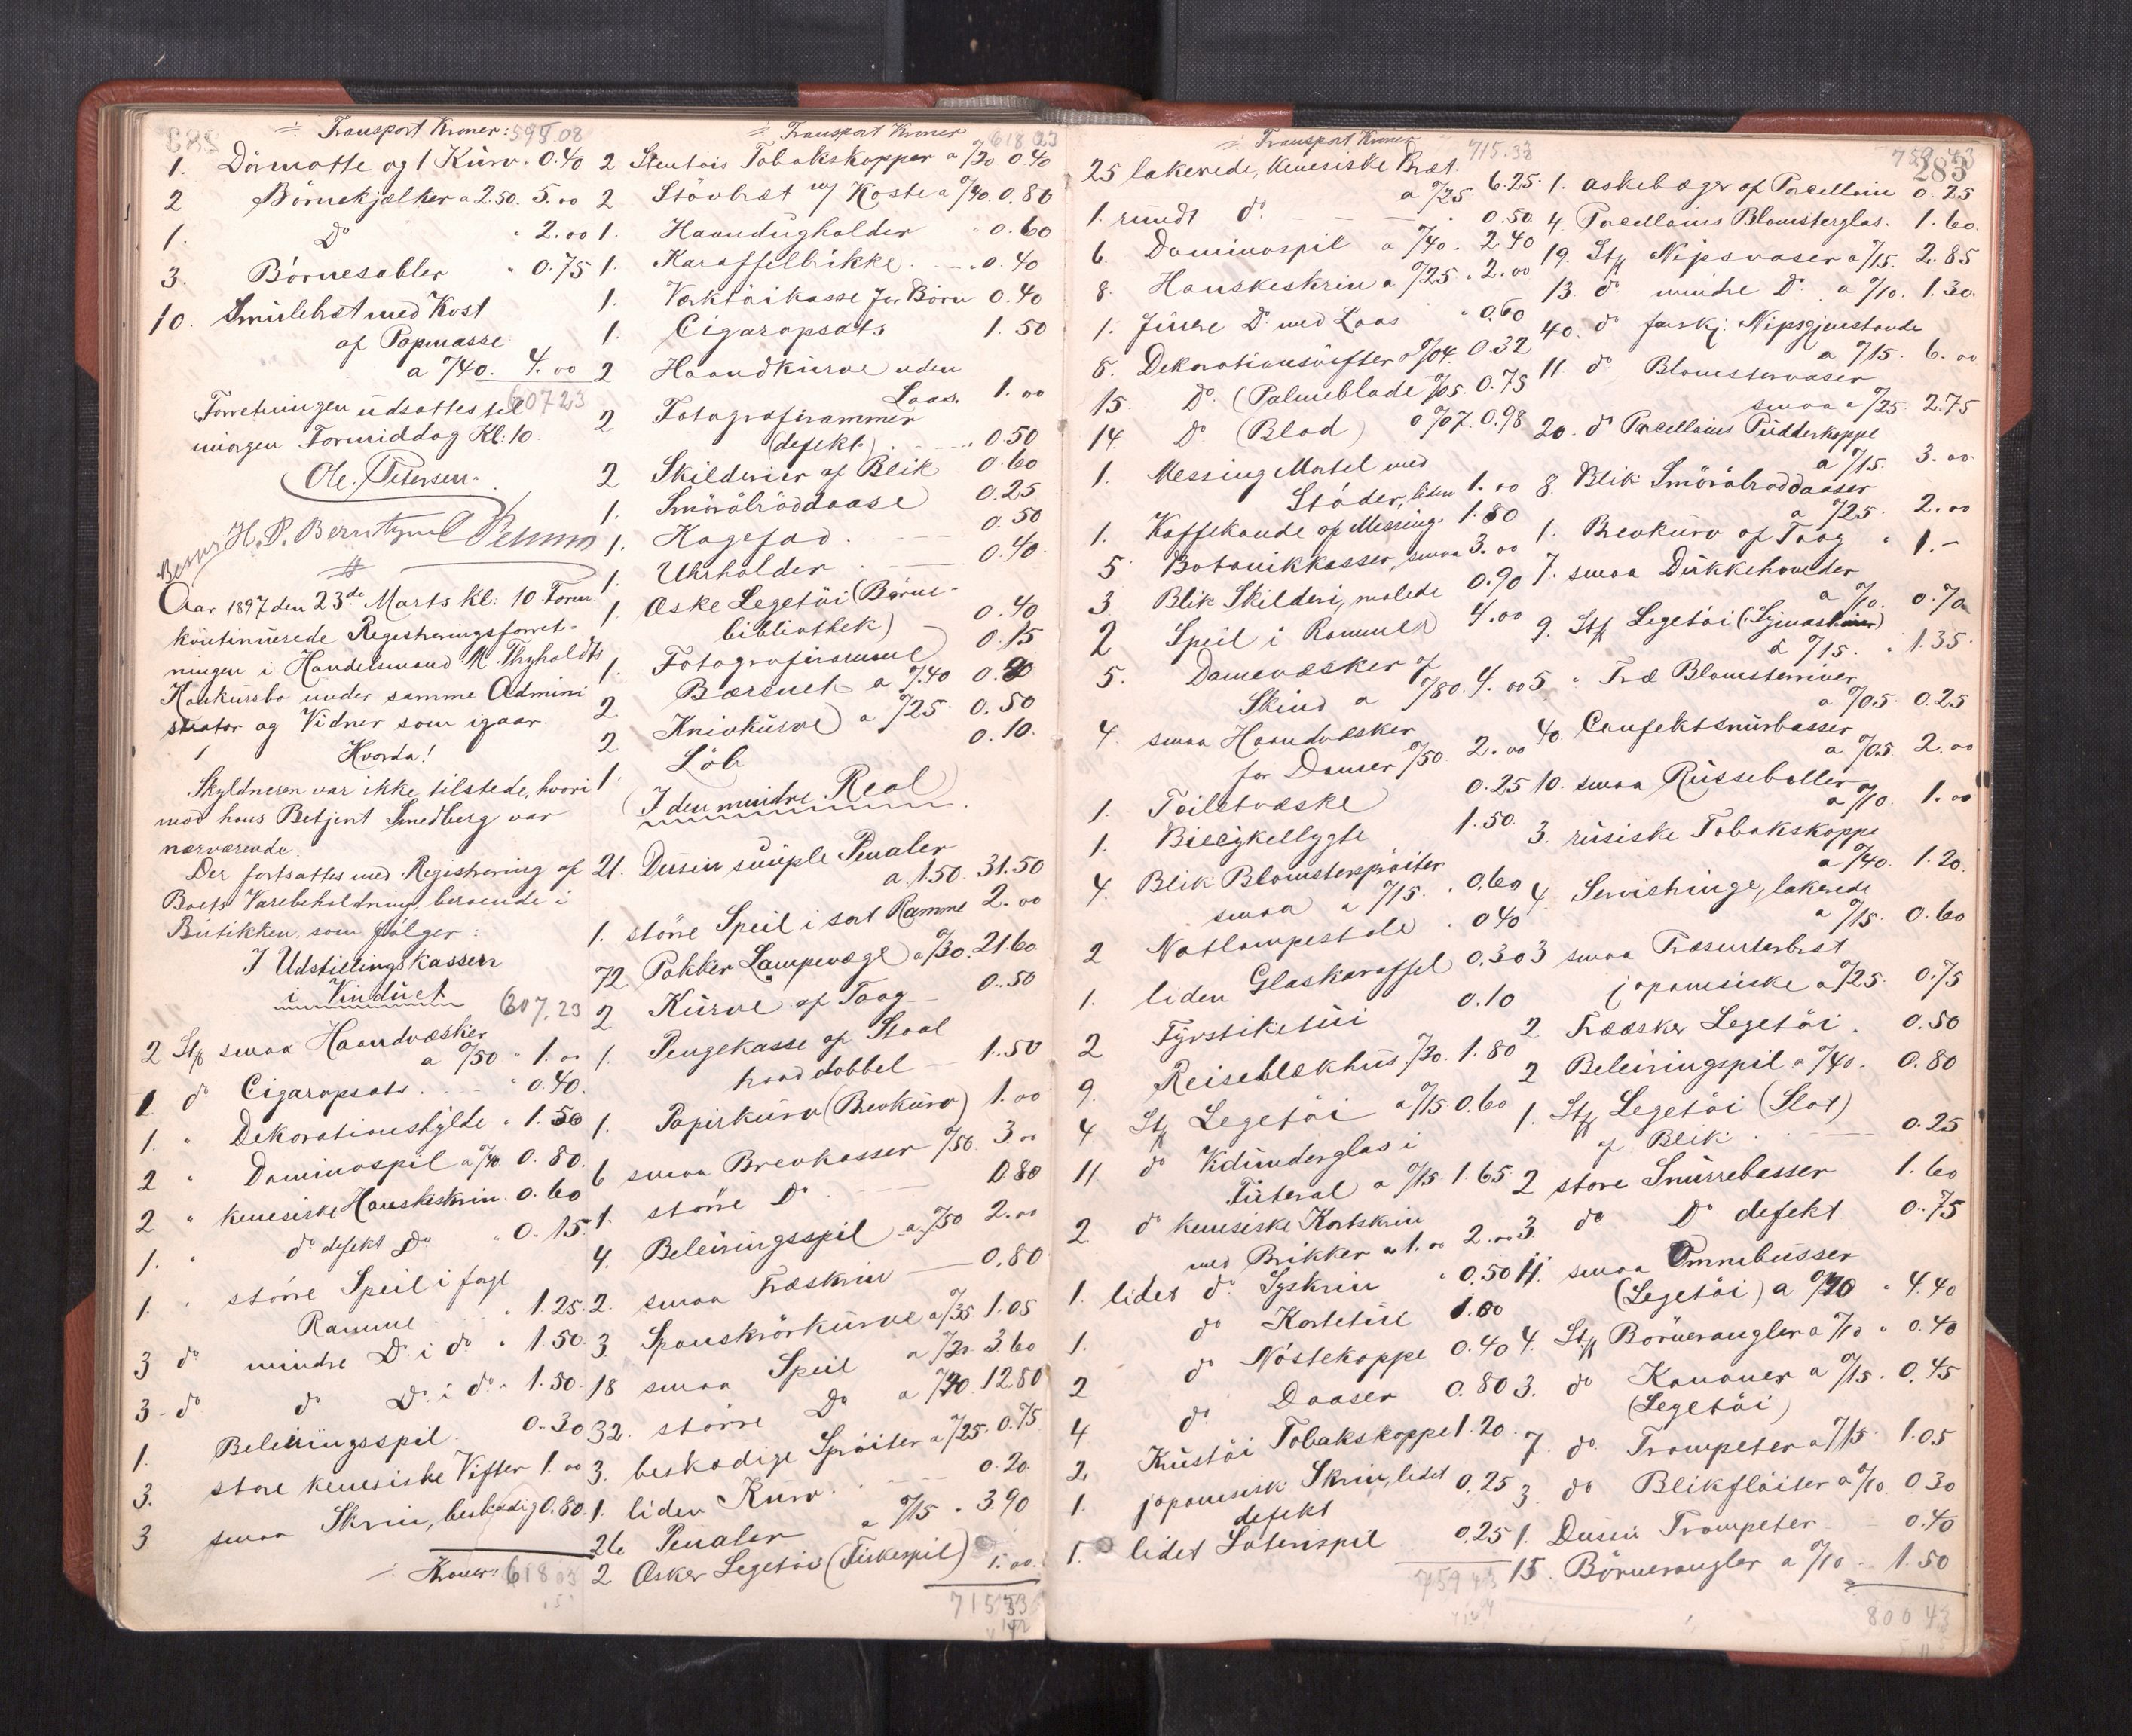 ÷ Transport Kroner: 595.08
1. Dörmatte og 1 Kürv. 0.40
2 Börnekjælker a 2.50. 5.00
1. Do " 2.00
3. Börnesabler " 0.75
10. Smülebræt med Kost
af Papmasse
a %40. 4.00
607.23
Forretningen üdsattes til
imorgen Formiddag Kl: 10.
Ole. Petersen.
H. P. Berntzen
Aar 1897 den 23de Marts kl: 10. Form.
kontinüerede Registreringsforret-
ningen i Handelsmand N. Thyholdts
Konkursbo ünder samme Admini
strator og Vidner som igaar.
Hvorda!
Skyldneren var ikke tilstede, hvori
mod hans Betjent Smedberg var
nærværende.
Der fortsattes med Registrering af
Boets Varebeholdning beroende i
Bütikken, som fölger:
I Udstillingskassen
i Vindüet
607.23
2 Stk smaa Haandvæsker
a %50 " 1.00
1 do Cigaropsats. " 0.40.
1. " Dekorationshylde " 1.50
2 " Dominospil a %40 0.80.
2 " kinesiske Hanskeskrin. 0.60
1. " do defekt Do " 0.15
1. " större Speil i fagl
Ramme " 1.25.
3 do mindre Do i do " 1.50.
3 - do do Do i do " 1.50.
1. Beleiringsspil. 0.30
3. store kinesiske Vifter 1.00
3. smaa Skrin, beskadig 0.80.
÷ Kroner: 618 03
÷ Transport Kroner 618 03
2 Stentöis Tobakskopper a %20 0.40
2 Stövbræt m/ Koste a %40. 0.80
1. Haandügholder " 0.60
1. Karaffelbrikke. 0.40
1. Værktöikasse for Börn 0.40
1. Cigaropsats 1.50
2 Haandkürve uden
Laas. 1.00
2 Fotografirammer
(defekt) 0.50
2 Skilderier af Blik 0.60
1. Smörebröddaase 0.25
1. Kagefad. 0.50
1. Uhrholder 0.40.
1. Æske Legetöi (Börne-
bibliothek) 0.40
1. Fotografiramme 0.15
2 Bærenet a %40 0.80
2 Knivkürve a %25 0.50
1. Löb 0.10.
(I den mindre Reol)
21. Düsin simple Penaler
a 1.50. 31.50
1. större Speil i sort Ramme 2.00
72. Pakker Lampevæge a %30. 21.60
2 Kürve af Taag 0.50
1. Pengekasse af Staal
hvad dobbel 1.50
1. Papirkürv (Brevkürv) 1.00
6 smaa Brevkasser %50 3.00
1. större Do 0.80
4. Beleiringsspil a %50 2.00
2. smaa Træskrin 0.80
3. Spanskrörkürve a %35 1.05
18 smaa Speil a %20 3.60
32. större Do a %40. 12.80
3. beskadige Spröiter a %25. 0.75
1. liden Kürv. 0.20.
26 Penaler a %15 " 3.90
2 Æsker Legetöi (Fiskespil) 1.00.
715 33
÷ Transport Kroner 715.33
25 lakerede, kinesiske Bræt.
a %25. 6.25.
1. rundt do. 0.50
6. Dominospil a %40. 2.40
8. Hanskeskrin a %25 " 2.00
1. finere Do med Laas " 0.60
8. Dekorationsvifter a %04. 0.32
15. Do. (Palmeblade %05. 0.75
14. Do (Blad) a %07. 0.98
1. Messing Mortel med
Stöder, liden 1.00
1. Kaffekande af Messing. 1.80
5. Botanikkasser, smaa 3.00
3 Blik Skilderi, malede 0.90
2 Speil i Ramme 4.00
5. Damevæsker af
Skind a %80. 4.00
4. smaa Haandvæsker
for Damer %50. 2.00
1. Toiletvæske 0.25
1. Bicÿkellygte 1.50.
4. Blik Blomsterspröiter
smaa a %15. " 0.60
2 Natlampestole. " 0.40
1. liden Glaskaraffel 0.30
2 Fÿrstiketüi 0.10
9. Reiseblækhüs %20. 1.80
4 Stk Legetöi a %15 0.60
11 do Vidünderglas i
Füteral a %15. 1.65
2. do kinesiske Kortskrin
med Brikker a 1.00 2.00
1. lidet do. Syskrin " 0.50
1. do Kortetüi 1.00
2 do Nöstekoppe 0.40
4 do Daaser 0.80
2. Krüstöi Tobakskoppe 1.20.
1. japanesisk Skrin, lidet 0.25
defekt
1. lidet Lotterispil 0.25
759 43
283
759.43
1. Askebæger af Porcellain 0.25
4. Porcellains Blomsterglas. 1.60.
19. Stk Nipsvaser a %15. 2.85
13. do mindre Do. a %10. 1.30.
40. do forskj. Nipsgjenstande
a %15. 6.00
11 do Blomstervaser
smaa a %25. 2.75
20. do Porcellains Püdderkoppe
a %15. 3.00
8. Blik Smörebröddaaser
a %25. 2.00
1. Brevkürv af Taag " 1.-
7. smaa Dükkehoveder
a %10. 0.70
9. Stk Legetöi
a %15. " 1.35.
5 " Træ Blomsterriver
a %05. 0.25
40. Confektsnürbasser
a %05. 2.00
10. smaa Rüsseboller
a %10. 1.00
3. rüsiske Tobakskoppe
a %40. 1.20.
4 Servietringe, lakerede
a %15. 0.60
3 smaa Præsenterbræt
japanesiske a %25. 0.75
2 Trææsker Legetöi. 0.50
2 Beleiringspil a %40. 0.80
1. Stk Legetöi (Slot)
af Blik 0.25
2 store Snürrebasser 1.60
3. do Do defekt 0.75
11. smaa Omnibüsser
(Legetöi) a %40 " 4.40
4. Stk Börnerangler a %10 " 0.40
3. do Kanoner a %15. 0.45
(Legetöi)
7. do. Trompeter a %15. 1.05
3. do Blikflöiter a %10. 0.30
1. Düsin Trompeter 0.40
15. Börnerangler a %10 " 1.50
800 43